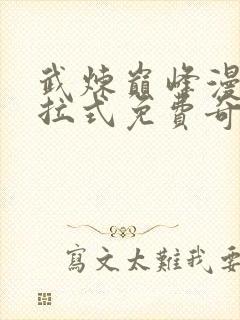 武煉巔峰漫
拉式免費奇
寫文太難我要